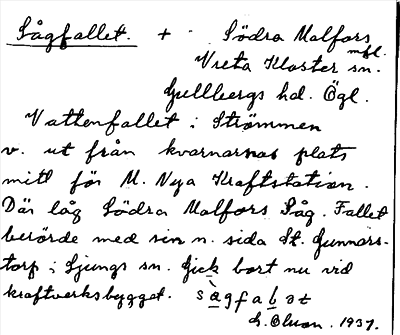 Sågfallet. + Södra Malfors
mfl.
Vreta Kloster sn.
Gullbergs hd. Ögl.
Vattenfallet i Strömmen
v. ut från kvarnarnas plats
mitt för M. Nya Kraftstation.
Där låg Södra Malfors Såg. Fallet
berörde med sin n. sida St. Gunnors-
torp i Ljungs sn. Gick bort nu vid
kraftverksbygget. sågfalət
1937.